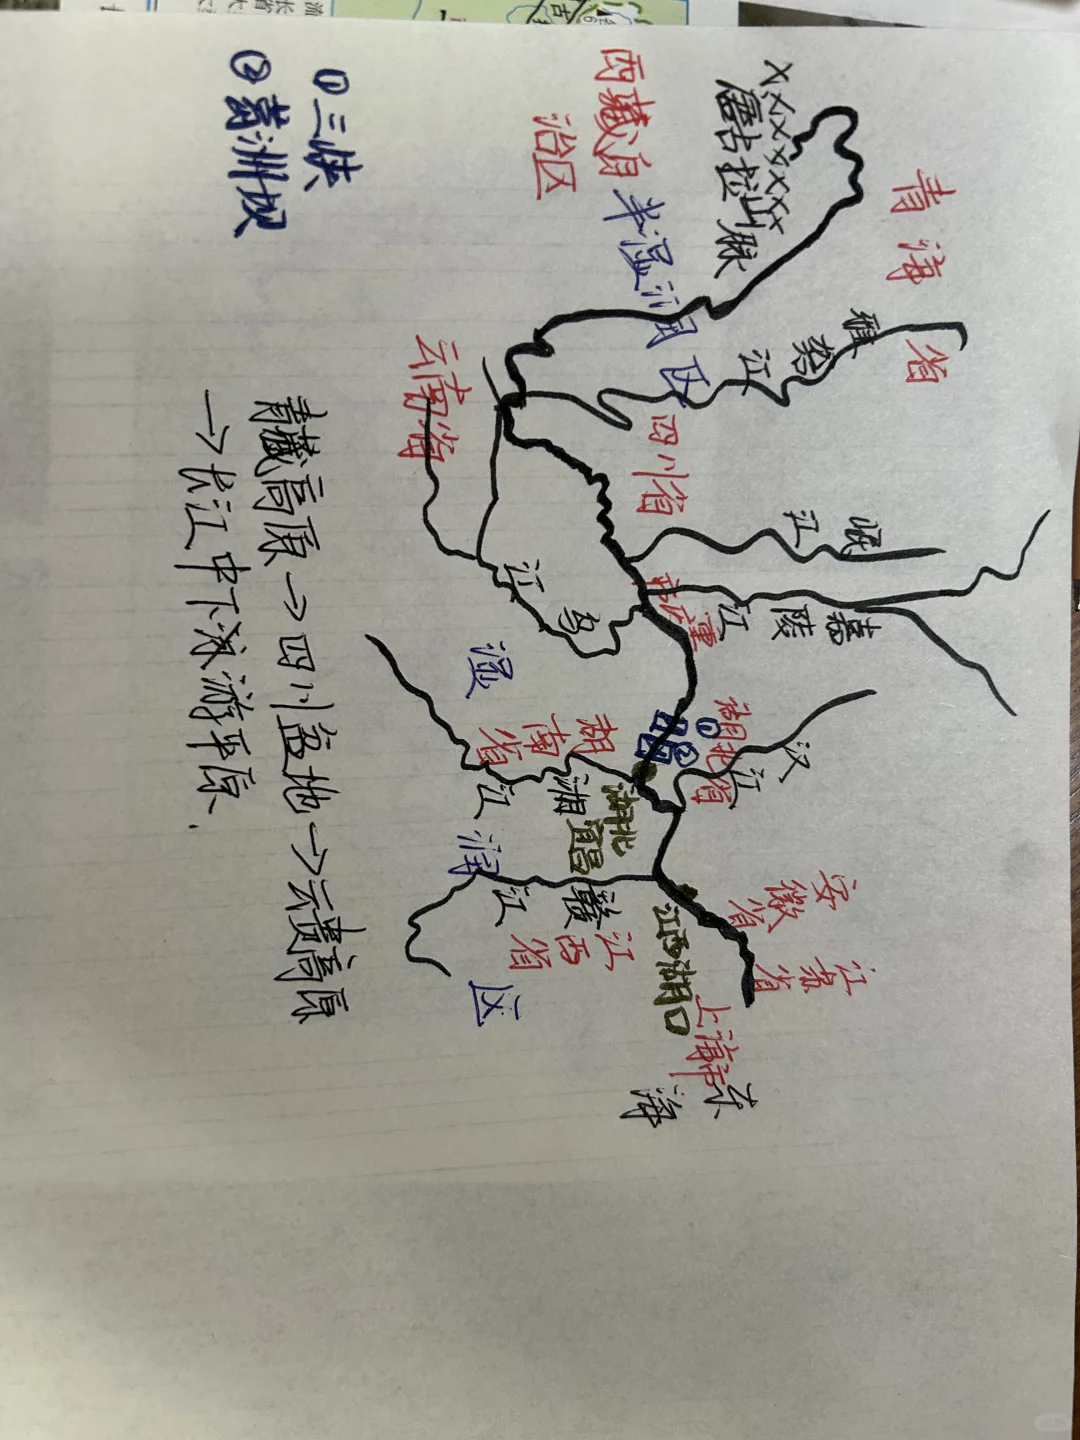 青海省
唐古拉山脉
西藏自
治区
半湿润区
雅砻江
四川省
云南省
岷江
嘉陵江
重庆市
乌江
汉江
湖北省
①
②
湖北
宜昌
湖南省
湘江
湿润区
赣江
江西省
江西湖口
安徽省
江苏省
上海市
东海
①三峡
②葛洲坝
青藏高原→四川盆地→云贵高原
→长江中下游平原.